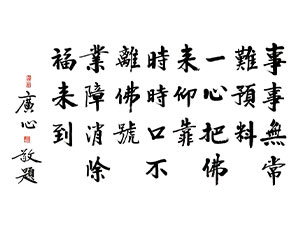 事事無常
難預料
一心把佛
来仰靠
時時口不
離佛號
業障消除
福来到
廣心敬題